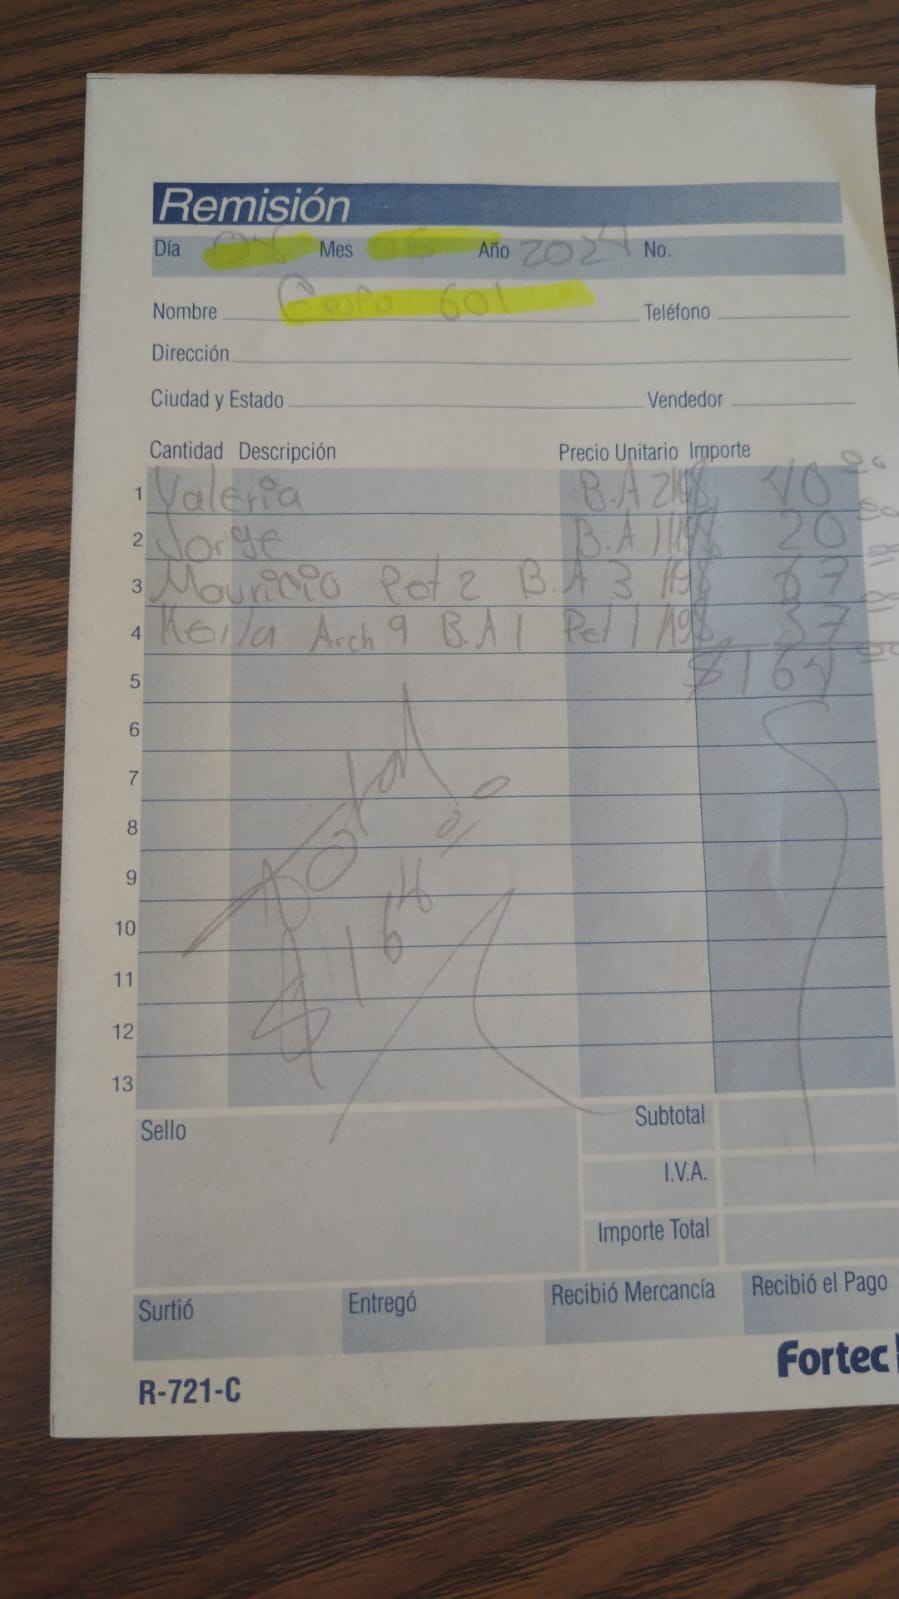 Remisión
Día Mes 06 Año 2024 No.
Nombre Grupo 601 Teléfono
Dirección
Ciudad y Estado Vendedor
Cantidad Descripción Precio Unitario Importe
1 Valeria B.A 2 40 00
2 Jorge B.A 1 20 00
3 Mauricio Pet 2 B.A 3 67
4 Keila Arch 9 B.A 1 Pet 1 37
5 $164
6
7
8
9
10
11
12
13
Total
$164.00
Sello
Subtotal
I.V.A.
Importe Total
Surtió Entregó Recibió Mercancía Recibió el Pago
Fortec
R-721-C